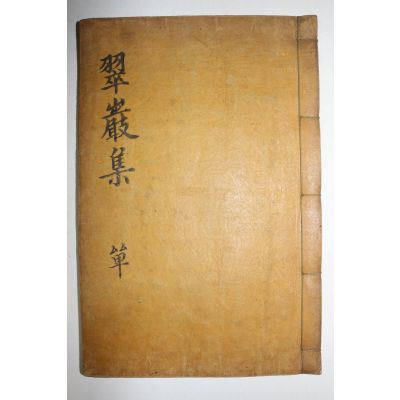 翠巖集
單